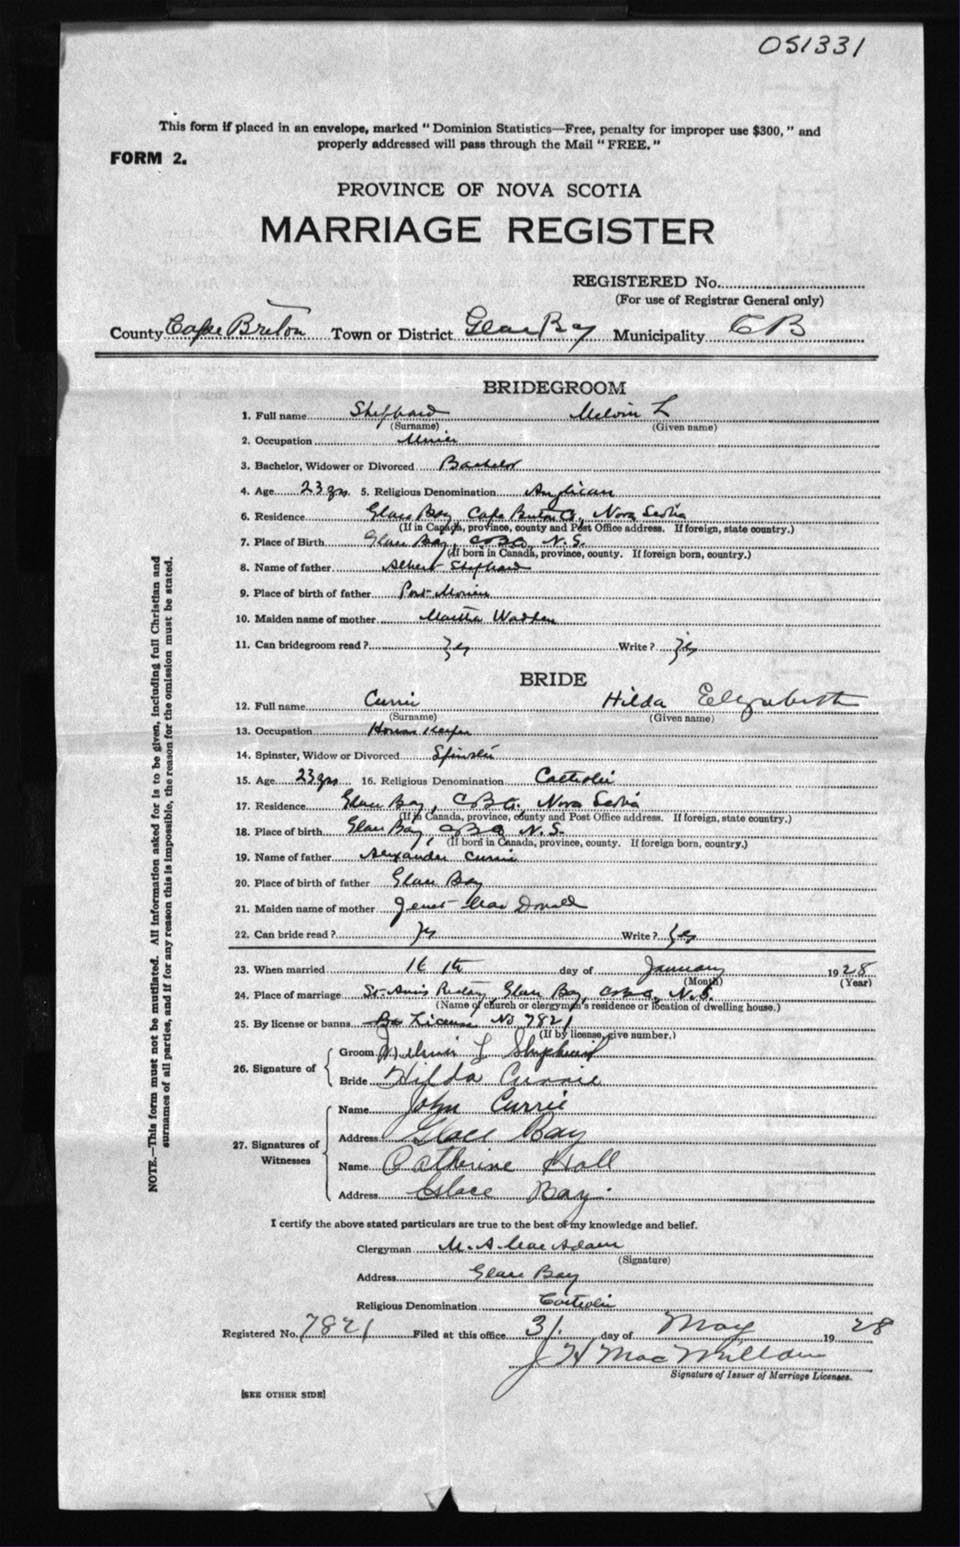 051331
This form if placed in an envelope, marked "Dominion Statistics—Free, penalty for improper use $300," and
properly addressed will pass through the Mail "FREE."
FORM 2.
PROVINCE OF NOVA SCOTIA
MARRIAGE REGISTER
REGISTERED No.
(For use of Registrar General only)
County Cape Breton Town or District Glace Bay Municipality C B
BRIDEGROOM
1. Full name Shephard Melvin L
(Surname) (Given name)
2. Occupation Miner
3. Bachelor, Widower or Divorced Bachelor
4. Age 23 yrs. 5. Religious Denomination Anglican
6. Residence Glace Bay, Cape Breton Co, Nova Scotia
(If in Canada, province, county and Post Office address. If foreign, state country.)
7. Place of Birth Glace Bay, C B Co, N. S.
(If born in Canada, province, county. If foreign born, country.)
8. Name of father Albert Shephard
9. Place of birth of father Port Morien
10. Maiden name of mother Martha Wadden
11. Can bridegroom read? Yes Write? Yes
BRIDE
12. Full name Currie Hilda Elizabeth
(Surname) (Given name)
13. Occupation House Keeper
14. Spinster, Widow or Divorced Spinster
15. Age 23 yrs 16. Religious Denomination Catholic
17. Residence Glace Bay, C B Co, Nova Scotia
(If in Canada, province, county and Post Office address. If foreign, state country.)
18. Place of birth Glace Bay, C B Co N. S.
(If born in Canada, province, county. If foreign born, country.)
19. Name of father Alexander Currie
20. Place of birth of father Glace Bay
21. Maiden name of mother Janet MacDonald
22. Can bride read? Yes Write? Yes
23. When married 16 th day of January 1928
(Month) (Year)
24. Place of marriage St. Anns Glace Bay, C B Co, N. S.
(Name of church or clergyman's residence or location of dwelling house.)
25. By license or banns By License No 7821
(If by license, give number.)
26. Signature of
Groom Melvin L Shephard
Bride Hilda Currie
27. Signatures of Witnesses
Name John Currie
Address Glace Bay
Name Catherine Hall
Address Glace Bay.
I certify the above stated particulars are true to the best of my knowledge and belief.
Clergyman M. A. MacAdam
(Signature)
Address Glace Bay
Religious Denomination Catholic
Registered No. 7821 Filed at this office 31. day of May 1928
J H MacMillan
Signature of Issuer of Marriage Licenses.
[SEE OTHER SIDE]
NOTE.—This form must not be mutilated. All information asked for is to be given, including full Christian and
surnames of all parties, and if for any reason this is impossible, the reason for the omission must be stated.